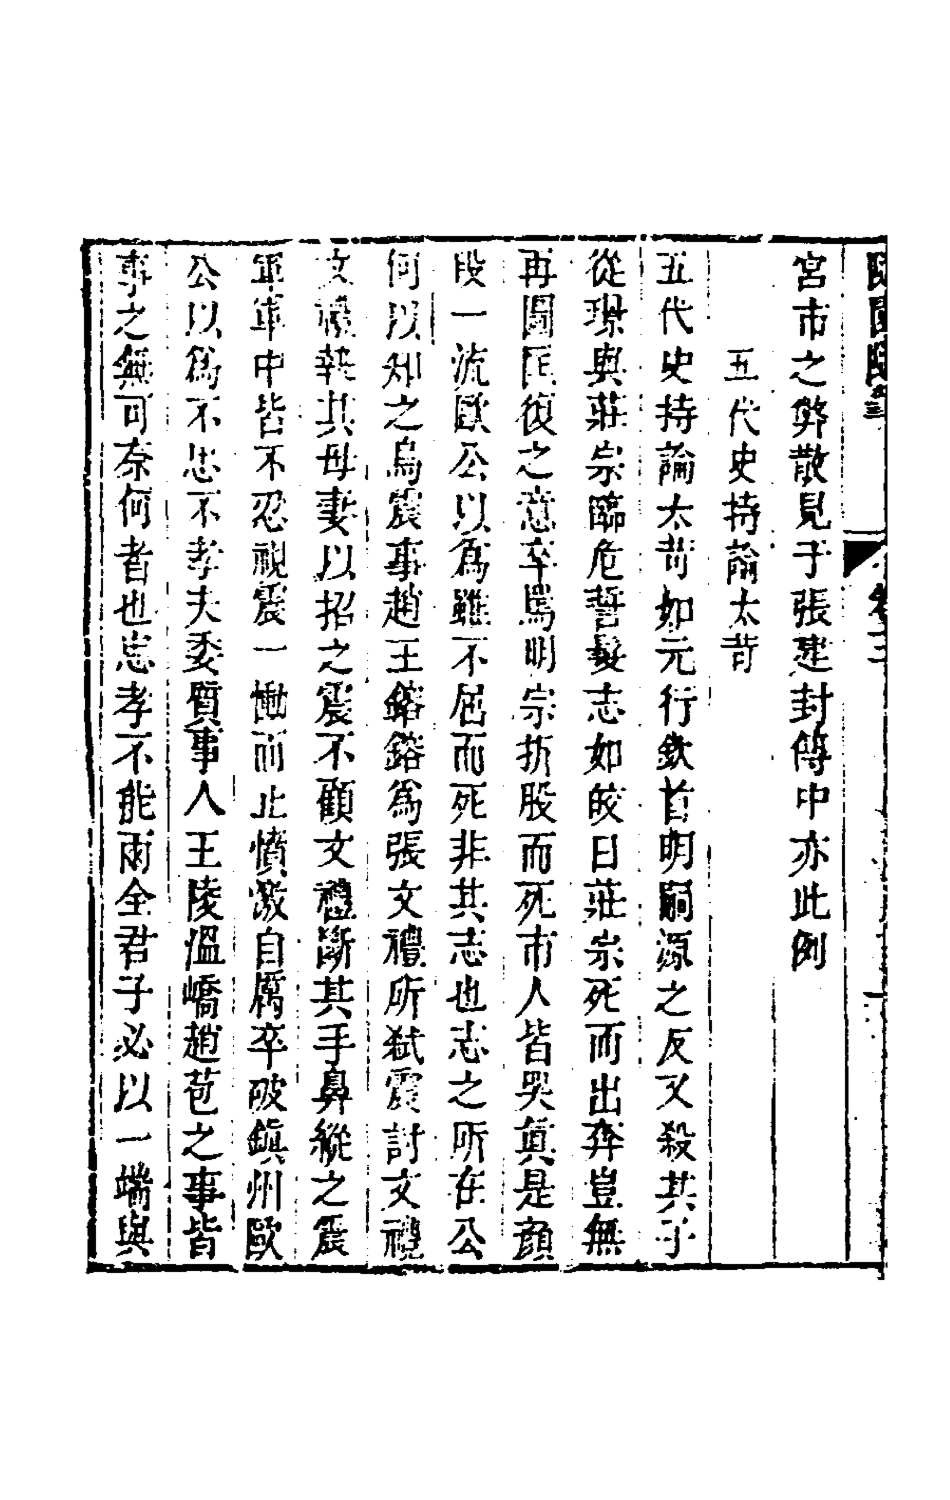 宮市之弊散見于張建封傳中亦此例
五代史持論太苛
五代史持論太苛如元行欽首明嗣源之反又殺其子
從璟與莊宗臨危誓髮志如皎日莊宗死而出奔豈無
再圖匡復之意卒罵明宗折股而死市人皆哭真是顏
段一流歐公以為雖不屈而死非其志也志之所在公
何以知之烏震事趙王鎔鎔為張文禮所弒震討文禮
文禮執其母妻以招之震不顧文禮斷其手鼻縱之震
軍軍中皆不忍視震一慟而止憤激自厲卒破鎮州歐
公以為不忠不孝夫委質事人王陵溫嶠趙苞之事皆
事之無可奈何者也忠孝不能兩全君子必以一端與